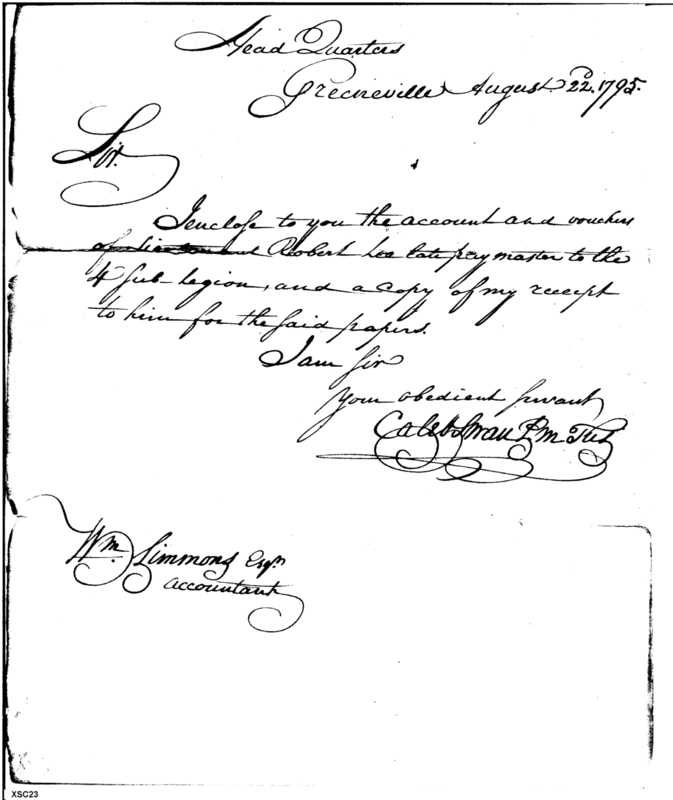 Head Quarters
Greeneville August 22d. 1795.
Sir.
I enclose to you the account and vouchers
of Lieutenant Robert Lee late paymaster to the
4 Sub Legion, and a copy of my receipt
to him for the said papers.
I am Sir
Your obedient servant
Caleb Swan P. M. Tus
Wm. Simmons Esqr.
accountant
XSC23